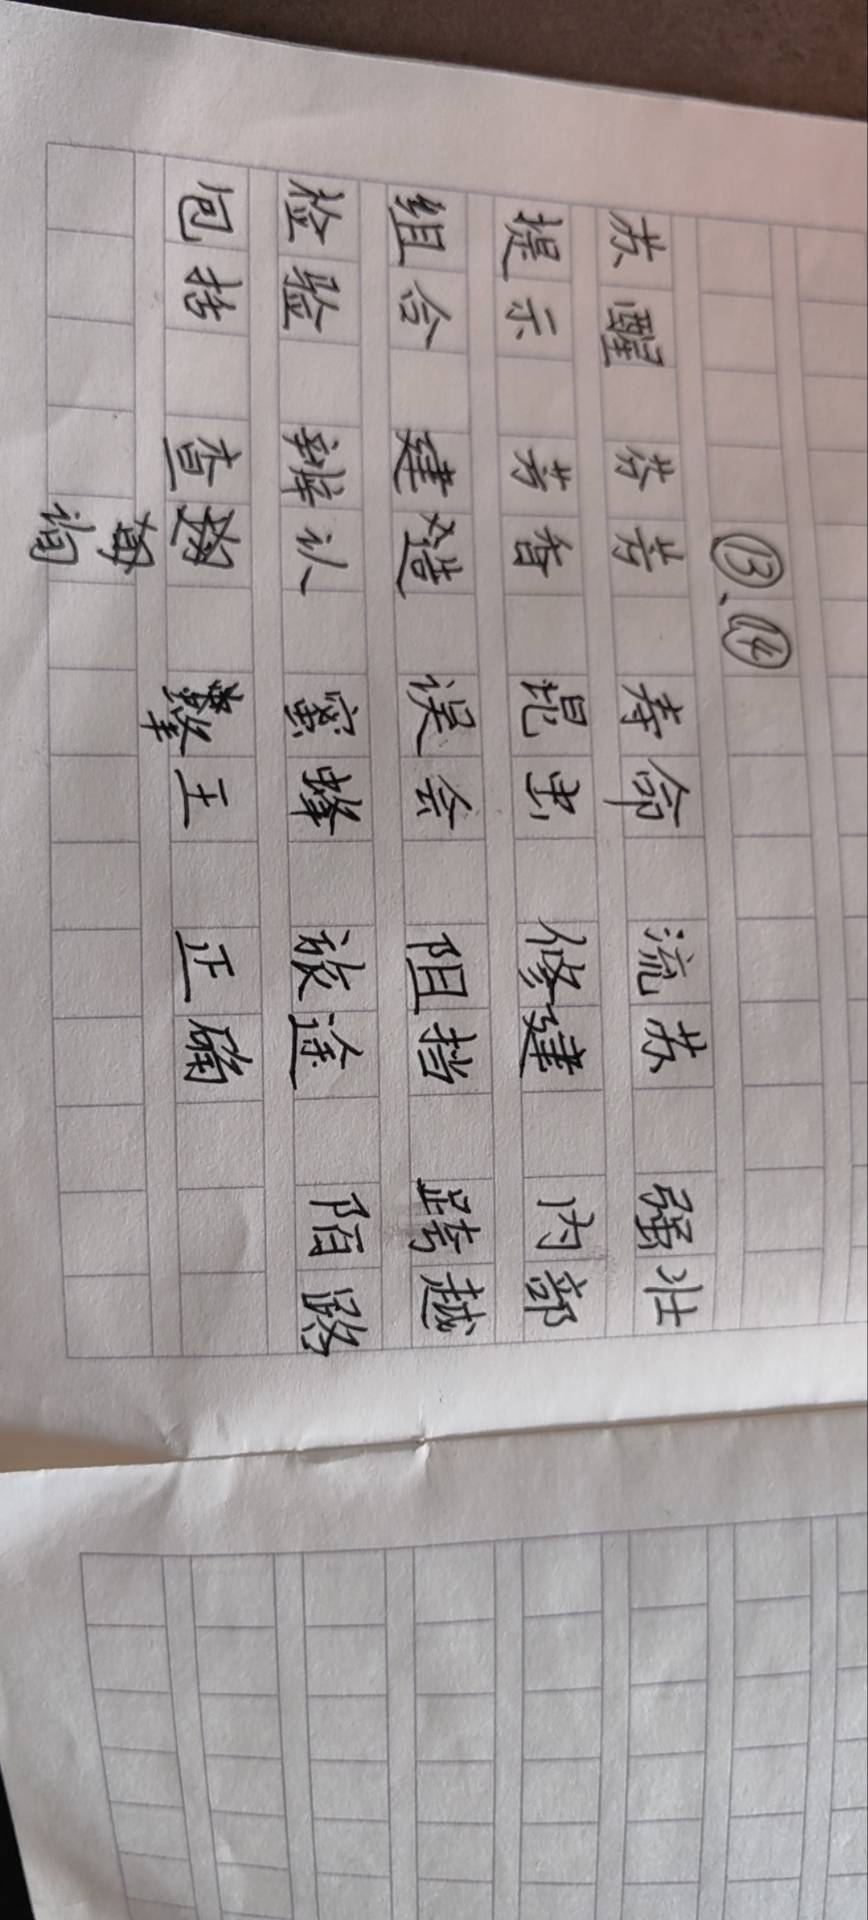 ⑬、⑭
苏醒 芬芳 寿命 流苏 强壮
提示 芳香 昆虫 修建 内部
组合 建造 误会 阻挡 跨越
检验 辨认 蜜蜂 旅途 陌路
包括 查 王 正确